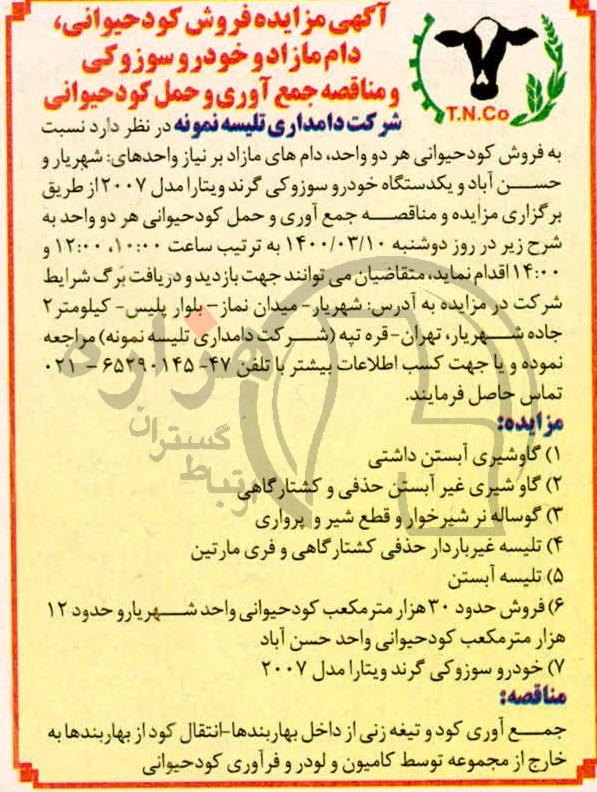 آگهی مزایده فروش کودحیوانی،
دام مازاد و خودرو سوزوکی
و مناقصه جمع آوری و حمل کودحیوانی
T.N.Co
شرکت دامداری تلیسه نمونه در نظر دارد نسبت
به فروش کودحیوانی هر دو واحد، دام های مازاد بر نیاز واحدهای: شهریار و
حسن آباد و یکدستگاه خودرو سوزوکی گرند ویتارا مدل ۲۰۰۷ از طریق
برگزاری مزایده و مناقصه جمع آوری و حمل کودحیوانی هر دو واحد به
شرح زیر در روز دوشنبه ۱۴۰۰/۰۳/۱۰ به ترتیب ساعت ۱۰:۰۰، ۱۲:۰۰ و
۱۴:۰۰ اقدام نماید، متقاضیان می توانند جهت بازدید و دریافت برگ شرایط
شرکت در مزایده به آدرس: شهریار- میدان نماز- بلوار پلیس- کیلومتر ۲
جاده شهریار، تهران- قره تپه (شرکت دامداری تلیسه نمونه) مراجعه
نموده و یا جهت کسب اطلاعات بیشتر با تلفن ۴۷- ۶۵۲۹۰۱۴۵ - ۰۲۱
تماس حاصل فرمایند.
مزایده:
۱) گاوشیری آبستن داشتی
۲) گاو شیری غیر آبستن حذفی و کشتارگاهی
۳) گوساله نر شیرخوار و قطع شیر و پرواری
۴) تلیسه غیرباردار حذفی کشتارگاهی و فری مارتین
۵) تلیسه آبستن
۶) فروش حدود ۳۰ هزار مترمکعب کودحیوانی واحد شهریار و حدود ۱۲
هزار مترمکعب کودحیوانی واحد حسن آباد
۷) خودرو سوزوکی گرند ویتارا مدل ۲۰۰۷
مناقصه:
جمع آوری کود و تیغه زنی از داخل بهاربندها-انتقال کود از بهاربندها به
خارج از مجموعه توسط کامیون و لودر و فرآوری کودحیوانی
هزاره
گستران
ارتباط